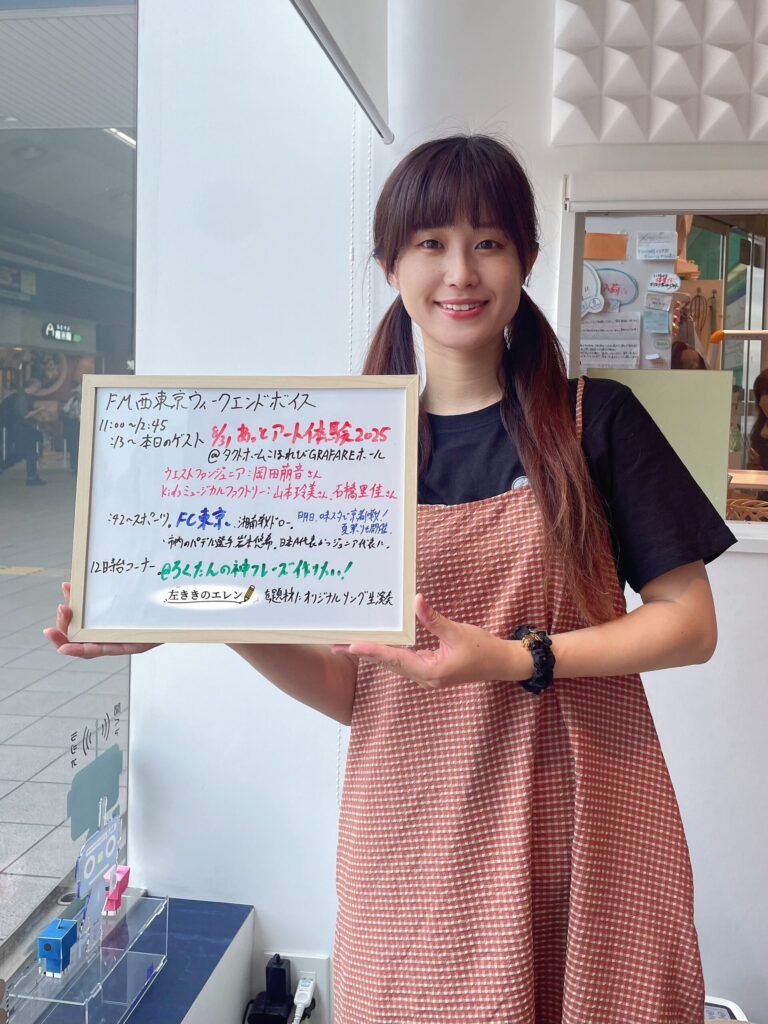 FM西東京ウィークエンドボイス
11:00〜12:45
:13〜本日のゲスト 8/31 あっとアート体験2025
@タクトホームこもれびGRAFAREホール
ウエストファンジュニア:岡田萌音さん
Kidsミュージカルファクトリー:山本玲美さん、石橋里佳さん
:42〜スポーツ。FC東京、湘南戦ドロー。
明日、味スタで京都戦!
夏祭りも開催。
市内のパデル選手 岩本悠希。日本代表ジュニア代表に。
12時台コーナー @ろくたんの神フレーズ作りたい!
左ききのエレン を題材に オリジナルソング生演奏